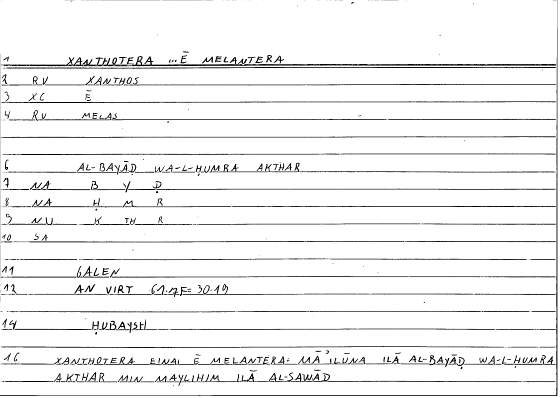 1 XANTHOTERA ...Ē MELANTERA
2 RV XANTHOS
3 XC Ē
4 RV MELAS
6 AL-BAYĀḌ WA-L-ḤUMRA AKTHAR
7 NA B Y Ḍ
8 NA Ḥ M R
9 NU K TH R
10 SA
11 GALEN
12 AN VIRT
14 ḤUBAYSH
16 XANTHOTERA EINAI Ē MELANTERA: MĀʾILŪNA ILĀ AL-BAYĀḌ WA-L-ḤUMRA
AKTHAR MIN MAYLIHIM ILĀ AL-SAWĀD